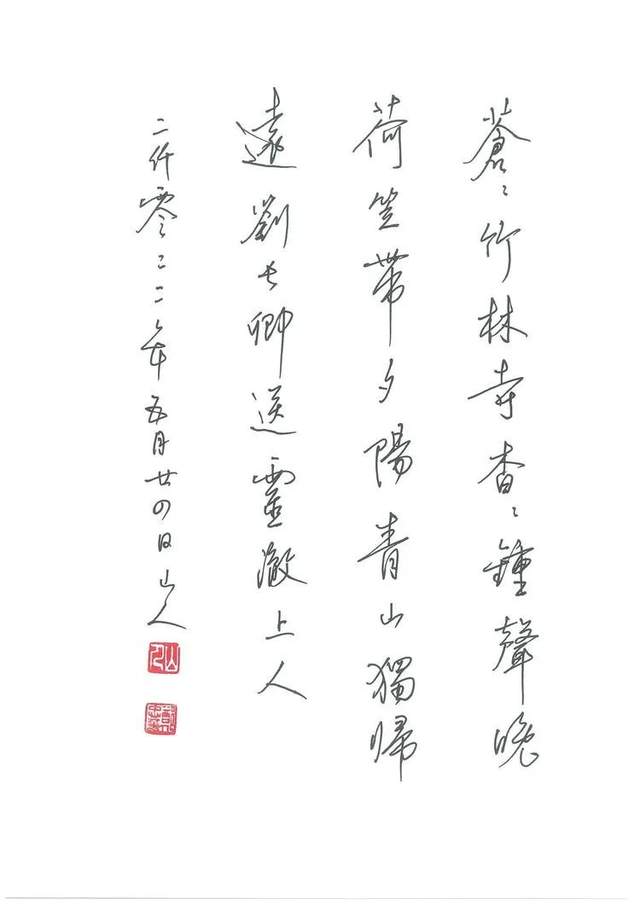 蒼〻竹林寺杳〻鍾聲晚
荷笠帶夕陽青山獨歸
遠劉長卿送靈澈上人
二仟零二二年五月廿四日山人
山人